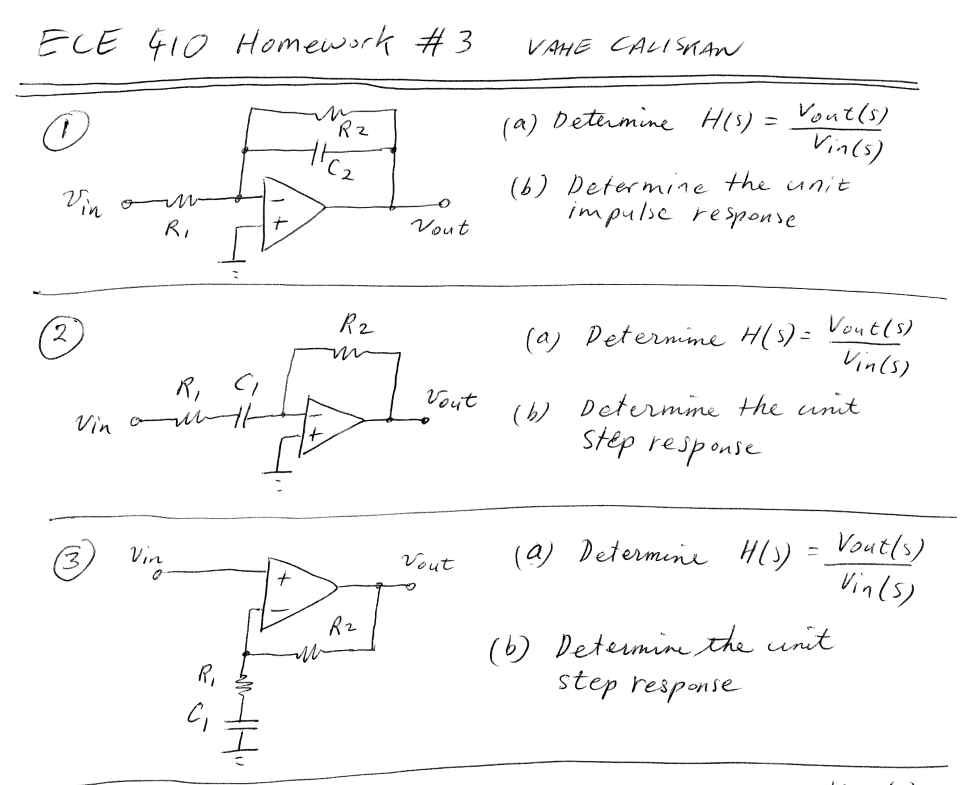 ECE 410 Homework #3 VAHE CALISKAN
1
R2
C2
Vin
R1
−
+
Vout
(a) Determine H(s) = Vout(s)
Vin(s)
(b) Determine the unit
impulse response
2
R2
R1 C1
Vin
−
+
Vout
(a) Determine H(s) = Vout(s)
Vin(s)
(b) Determine the unit
step response
3
Vin
+
−
Vout
R2
R1
C1
(a) Determine H(s) = Vout(s)
Vin(s)
(b) Determine the unit
step response